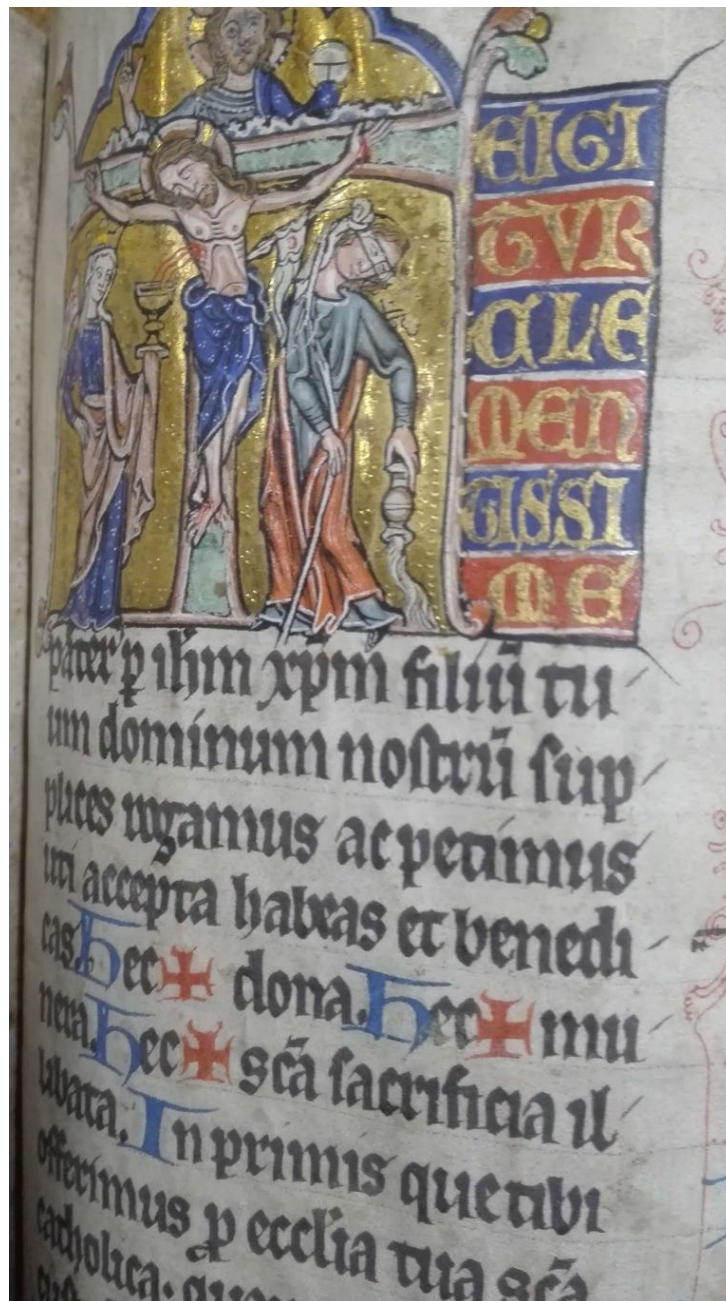 EIGI
TVR
CLE
MEN
TISSI
ME
pater p̱ ih̄m xp̄m filiū tu
um dominum nostrū sup
plices rogamus ac petimus
uti accepta habeas et benedi
cas. Hec ✠ dona. Hec ✠ mu
nera. Hec ✠ sc̄a sacrificia il
libata. In primis que tibi
offerimus ꝓ eccl̄ia tua sc̄a
catholica.